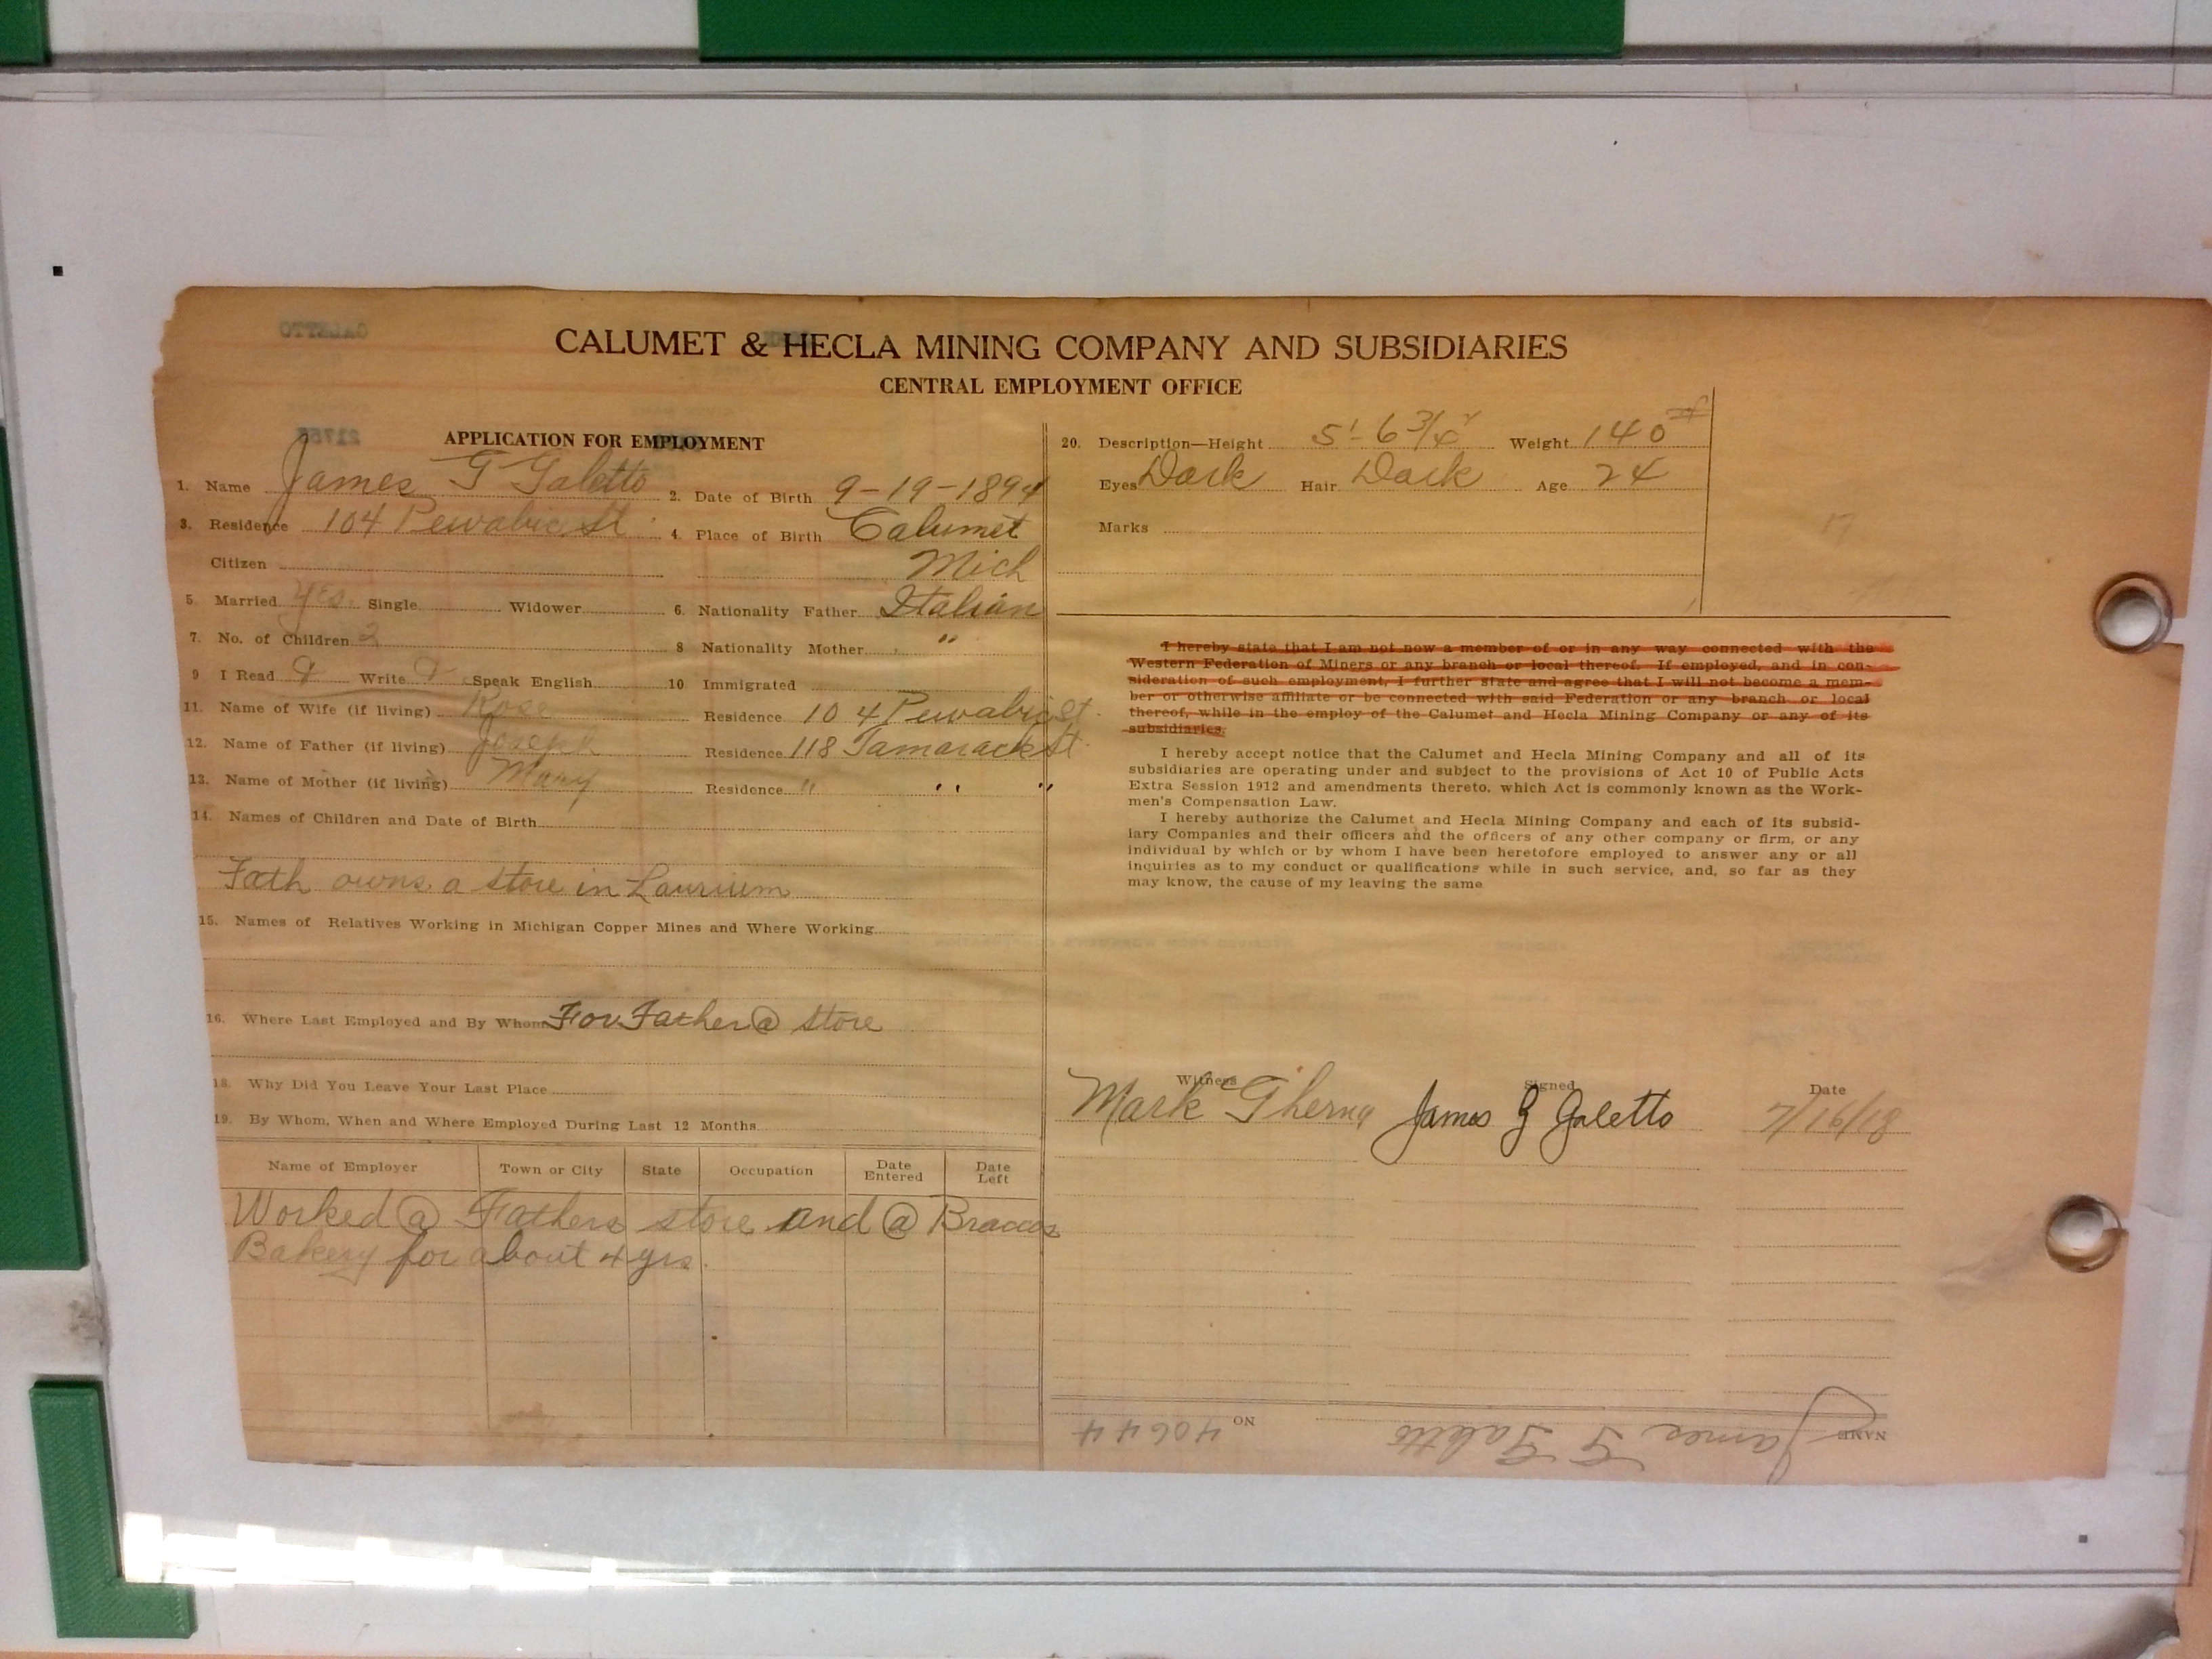 CALUMET & HECLA MINING COMPANY AND SUBSIDIARIES
CENTRAL EMPLOYMENT OFFICE
APPLICATION FOR EMPLOYMENT
1. Name James G Galetto 2. Date of Birth 9-19-1894
3. Residence 104 Pewabic St 4. Place of Birth Calumet
Citizen Mich
5. Married Yes Single Widower 6. Nationality Father Italian
7. No. of Children 2 8 Nationality Mother "
9 I Read Write Speak English 10 Immigrated
11. Name of Wife (if living) Rose Residence 104 Pewabic St.
12. Name of Father (if living) Joseph Residence 118 Tamarack St
13. Name of Mother (if living) Mary Residence " " "
14. Names of Children and Date of Birth
Fath owns a store in Laurium
15. Names of Relatives Working in Michigan Copper Mines and Where Working
16. Where Last Employed and By Whom For Father @ store
18. Why Did You Leave Your Last Place
19. By Whom, When and Where Employed During Last 12 Months
Name of Employer Town or City State Occupation Date Entered Date Left
Worked @ Fathers store and @ Braccos
Bakery for about 4 yrs.
20. Description—Height 5'-6 3/4" Weight 140#
Eyes Dark Hair Dark Age 24
Marks
17
I hereby state that I am not now a member of or in any way connected with the
Western Federation of Miners or any branch or local thereof. If employed, and in con-
sideration of such employment, I further state and agree that I will not become a mem-
ber or otherwise affiliate or be connected with said Federation or any branch or local
thereof, while in the employ of the Calumet and Hecla Mining Company or any of its
subsidiaries.
I hereby accept notice that the Calumet and Hecla Mining Company and all of its
subsidiaries are operating under and subject to the provisions of Act 10 of Public Acts
Extra Session 1912 and amendments thereto, which Act is commonly known as the Work-
men's Compensation Law.
I hereby authorize the Calumet and Hecla Mining Company and each of its subsid-
iary Companies and their officers and the officers of any other company or firm, or any
individual by which or by whom I have been heretofore employed to answer any or all
inquiries as to my conduct or qualifications while in such service, and, so far as they
may know, the cause of my leaving the same
Witness Signed Date
Mark James G Galetto 7/16/18
NAME James G Galetto NO 40644
GALETTO